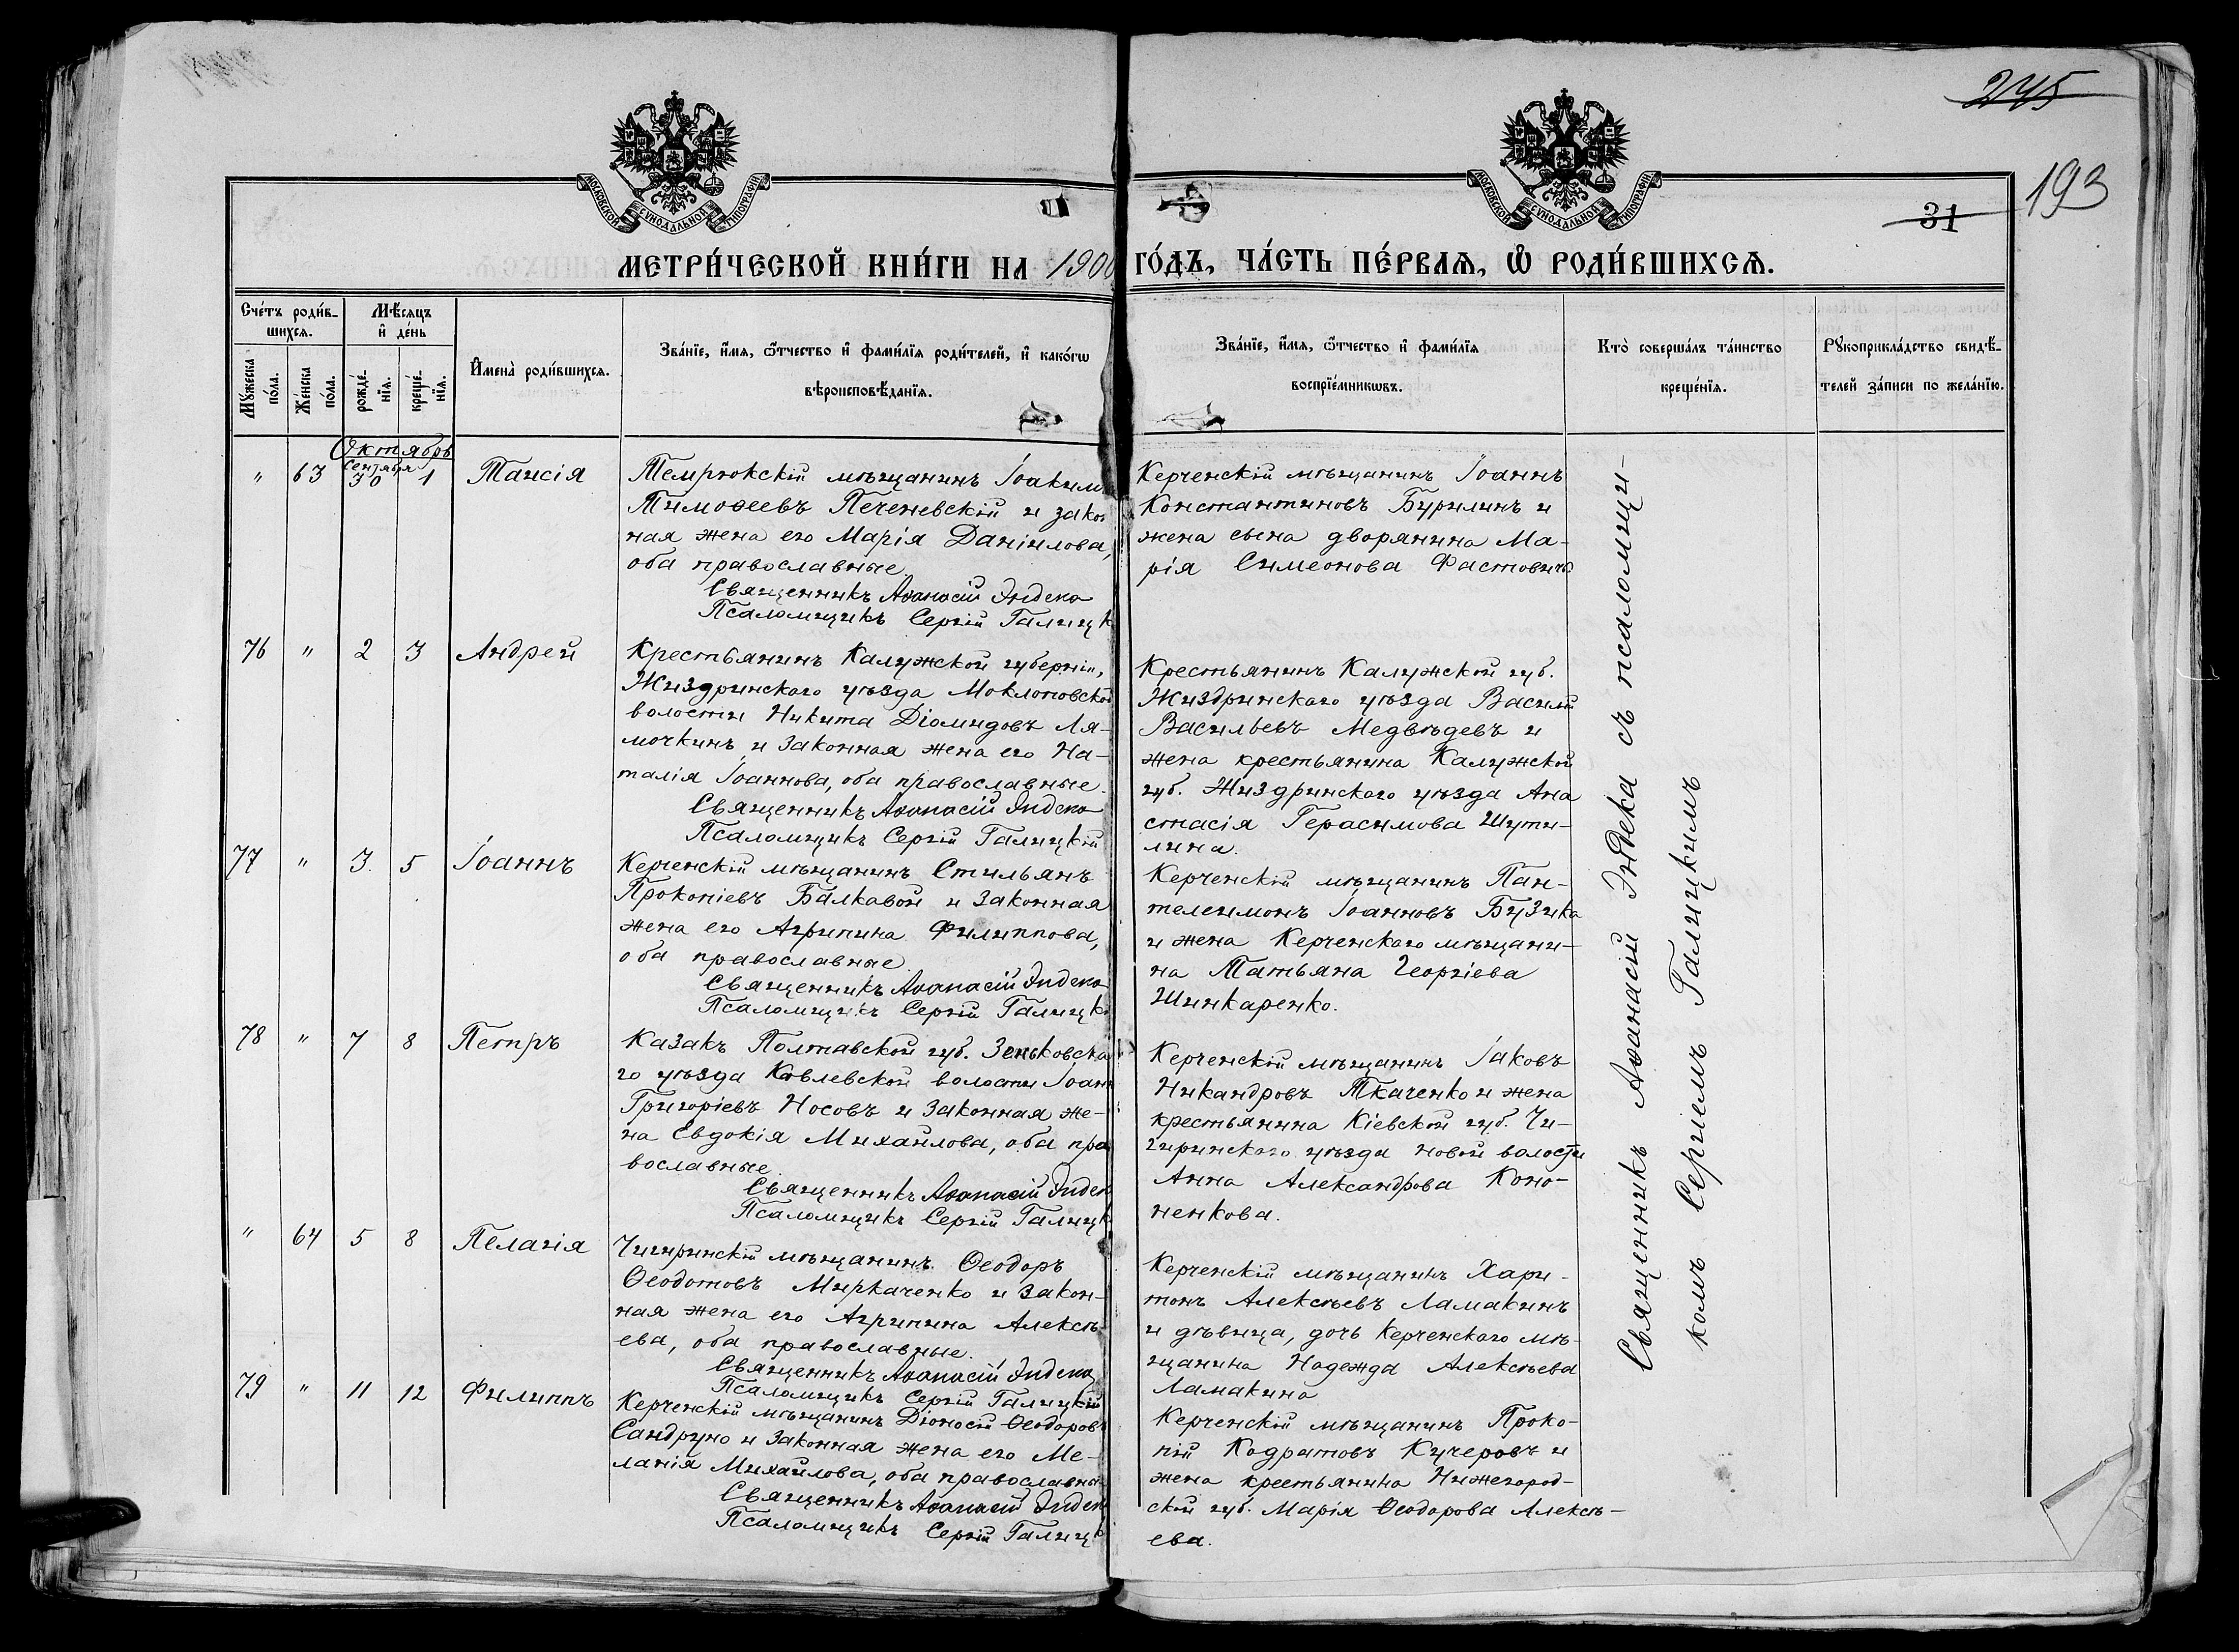 245
193
31
МОСКОВСКОЙ СУНОДАЛЬНОЙ ТИПОГРАФІИ
МОСКОВСКОЙ СУНОДАЛЬНОЙ ТИПОГРАФІИ
МЕТРИ́ЧЕСКОЙ КНИ́ГИ НА 1900 ГО́ДЪ, ЧА́СТЬ ПЕ́РВАѦ, Ѡ҆ РОДИ́ВШИХСѦ.
Сче́тъ роди́в-
шихсѧ.
Мꙋ́жеска
по́ла.
Же́нска
по́ла.
Мѣ́сѧцъ
и҆ де́нь
рожде́-
нїѧ.
креще́-
нїѧ.
И҆мена̀ роди́вшихсѧ.
Зва́нїе, и҆́мѧ, ѻ҆́тчество и҆ фами́лїѧ роди́телей, и҆ како́гѡ
вѣроисповѣ́данїѧ.
Зва́нїе, и҆́мѧ, ѻ҆́тчество и҆ фами́лїѧ
воспрїе́мникѡвъ.
Кто̀ соверша́лъ та́инство
креще́нїѧ.
Рꙋкоприкла́дство свидѣ́-
телей за́писи по жела́нїю.
Октябрь
Сентября
" 63 30 1 Таисія
Темрюкскій мѣщанинъ Іоаким
Тимоѳеевъ Печеневскій и закон
ная жена его Марія Даніилова,
оба православные
Священникъ Аѳанасій Эндека
Псаломщикъ Сергій Галицк
Керченскій мѣщанинъ Іоаннъ
Константиновъ Бурилинъ и
жена сына дворянина Ма-
рія Симеонова Фастовичъ
76 " 2 3 Андрей
Крестьянинъ Калужской губерніи,
Жиздринскаго уѣзда Моклоковской
волости Никита Діомидовъ Ля-
мочкинъ и законная жена его На-
талія Іоаннова, оба православные.
Священникъ Аѳанасій Эндека
Псаломщикъ Сергій Галицкій
Крестьянинъ Калужской губ.
Жиздринскаго уѣзда Василій
Васильевъ Медвѣдевъ и
жена крестьянина Калужской
губ. Жиздринскаго уѣзда Ана
стасія Герасимова Шути-
лина.
77 " 3. 5 Іоаннъ
Керченскій мѣщанинъ Стильянъ
Прокопіевъ Балкавой и законная
жена его Агрипина Филиппова,
оба православные
Священникъ Аѳанасій Эндека
Псаломщикъ Сергій Галицк
Керченскій мѣщанинъ Пан-
телеимонъ Іоанновъ Бузика
и жена Керченскаго мѣщани-
на Татьяна Георгіева
Шинкаренко.
78 " 7 8 Петръ
Казакъ Полтавской губ. Зеньковска
го уѣзда Ковлевской волости Іоанн
Григоріевъ Носовъ и законная же-
на Евдокія Михайлова, оба пра
вославные.
Священникъ Аѳанасій Эндек
Псаломщикъ Сергій Галицк
Керченскій мѣщанинъ Іаковъ
Никандровъ Ткаченко и жена
крестьянина Кіевской губ. Чи-
гиринскаго уѣзда новой волости
Анна Александрова Коно-
ненкова.
" 64 5 8 Пелагія
Чигиринскій мѣщанинъ Ѳеодоръ
Ѳеодотовъ Миркаченко и закон-
ная жена его Агрипина Алексѣ-
ева, оба православные.
Священникъ Аѳанасій Эндека
Псаломщикъ Сергій Галицкій
Керченскій мѣщанинъ Хари-
тонъ Алексѣевъ Ламакинъ
и дѣвица, дочь Керченскаго мѣ-
щанина Надежда Алексѣева
Ламакина
79 " 11 12 Филиппъ
Керченскій мѣщанинъ Діоносій Ѳеодоровъ
Сандруно и законная жена его Ме-
ланія Михайлова, оба православны
Священникъ Аѳанасій Эндек
Псаломщикъ Сергій Галиц
Керченскій мѣщанинъ Проко-
пій Кодратовъ Кучеровъ и
жена крестьянина Нижегород-
ской губ. Марія Ѳеодорова Алексѣ-
ева.
Священникъ Аѳанасій Эндека съ псаломщи-
комъ Сергіемъ Галицкимъ